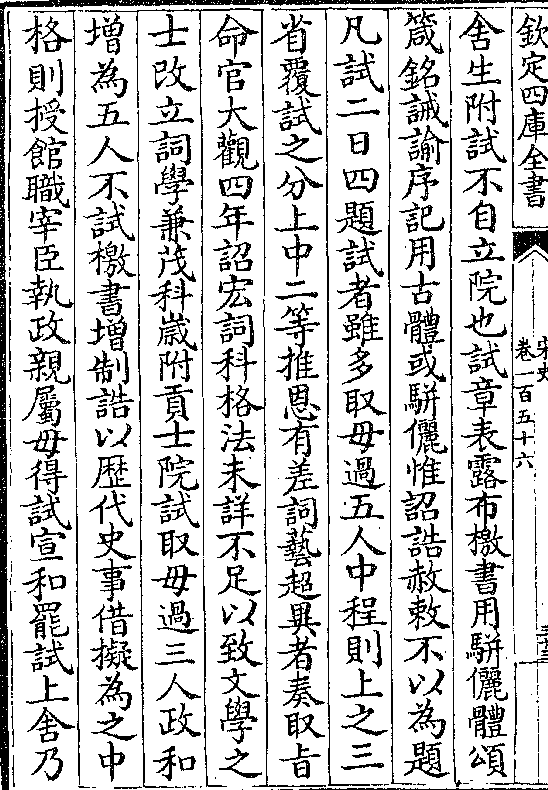 欽定四庫全書
宋史
卷一百五十六
舍生附試不自立院也試章表露布檄書用駢儷體頌
箴銘誡諭序記用古體或駢儷惟詔誥赦敕不以為題
凡試二日四題試者雖多取毋過五人中程則上之三
省覆試之分上中二等推恩有差詞藝超異者奏取旨
命官大觀四年詔宏詞科格法未詳不足以致文學之
士改立詞學兼茂科歲附貢士院試取毋過三人政和
增為五人不試檄書增制誥以歴代史事借擬為之中
格則授館職宰臣執政親屬毋得試宣和罷試上舍乃